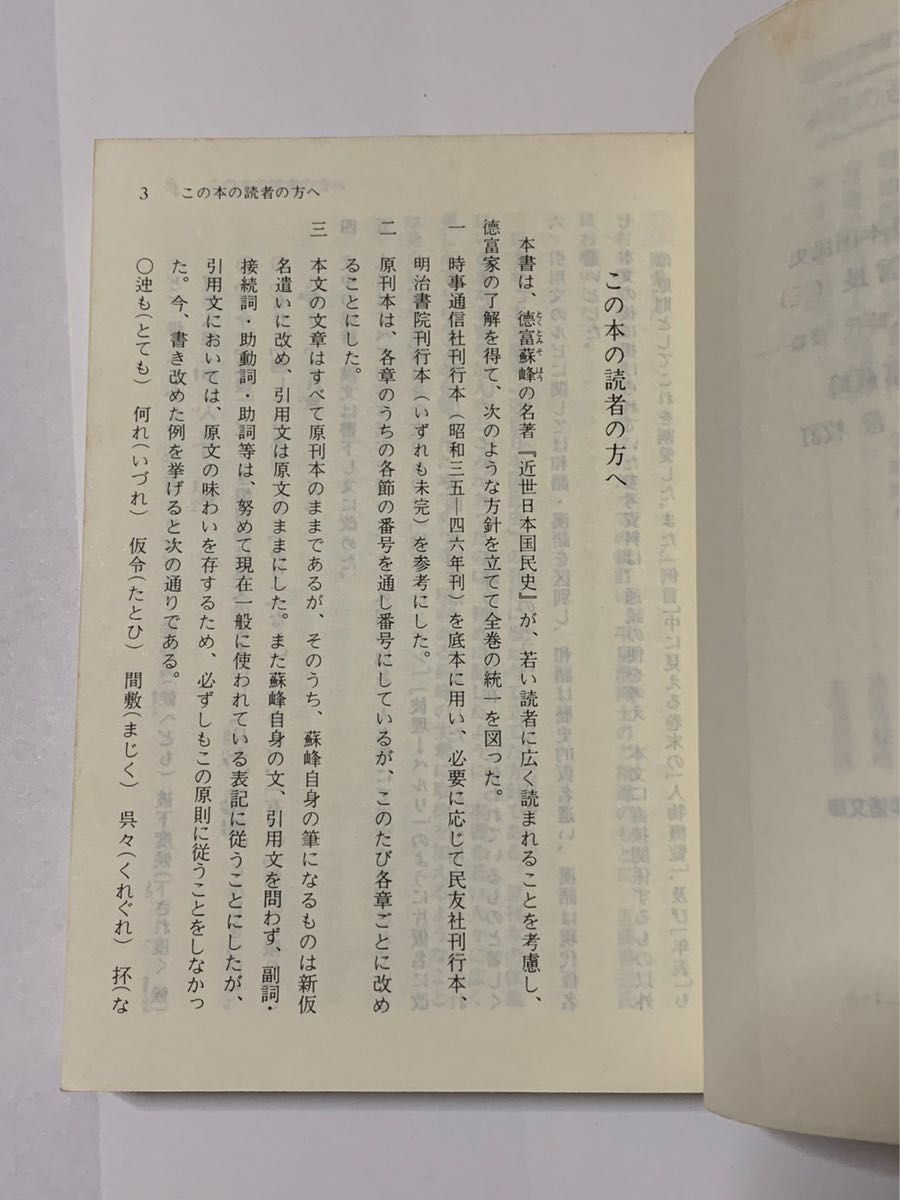 3 この本の読者の方へ
この本の読者の方へ
本書は、徳富蘇峰の名著『近世日本国民史』が、若い読者に広く読まれることを考慮し、
とくとみそほう
徳富家の了解を得て、次のような方針を立てて全巻の統一を図った。
一 時事通信社刊行本（昭和三五―四六年刊）を底本に用い、必要に応じて民友社刊行本、
明治書院刊行本（いずれも未完）を参考にした。
二 原刊本は、各章のうちの各節の番号を通し番号にしているが、このたび各章ごとに改め
ることにした。
三 本文の文章はすべて原刊本のままであるが、そのうち、蘇峰自身の筆になるものは新仮
名遣いに改め、引用文は原文のままにした。また蘇峰自身の文、引用文を問わず、副詞・
接続詞・助動詞・助詞等は、努めて現在一般に使われている表記に従うことにしたが、
引用文においては、原文の味わいを存するため、必ずしもこの原則に従うことをしなかっ
た。今、書き改めた例を挙げると次の通りである。
〇迚も（とても） 何れ（いづれ） 仮令（たとひ） 間敷（まじく） 呉々（くれぐれ） 抔（な